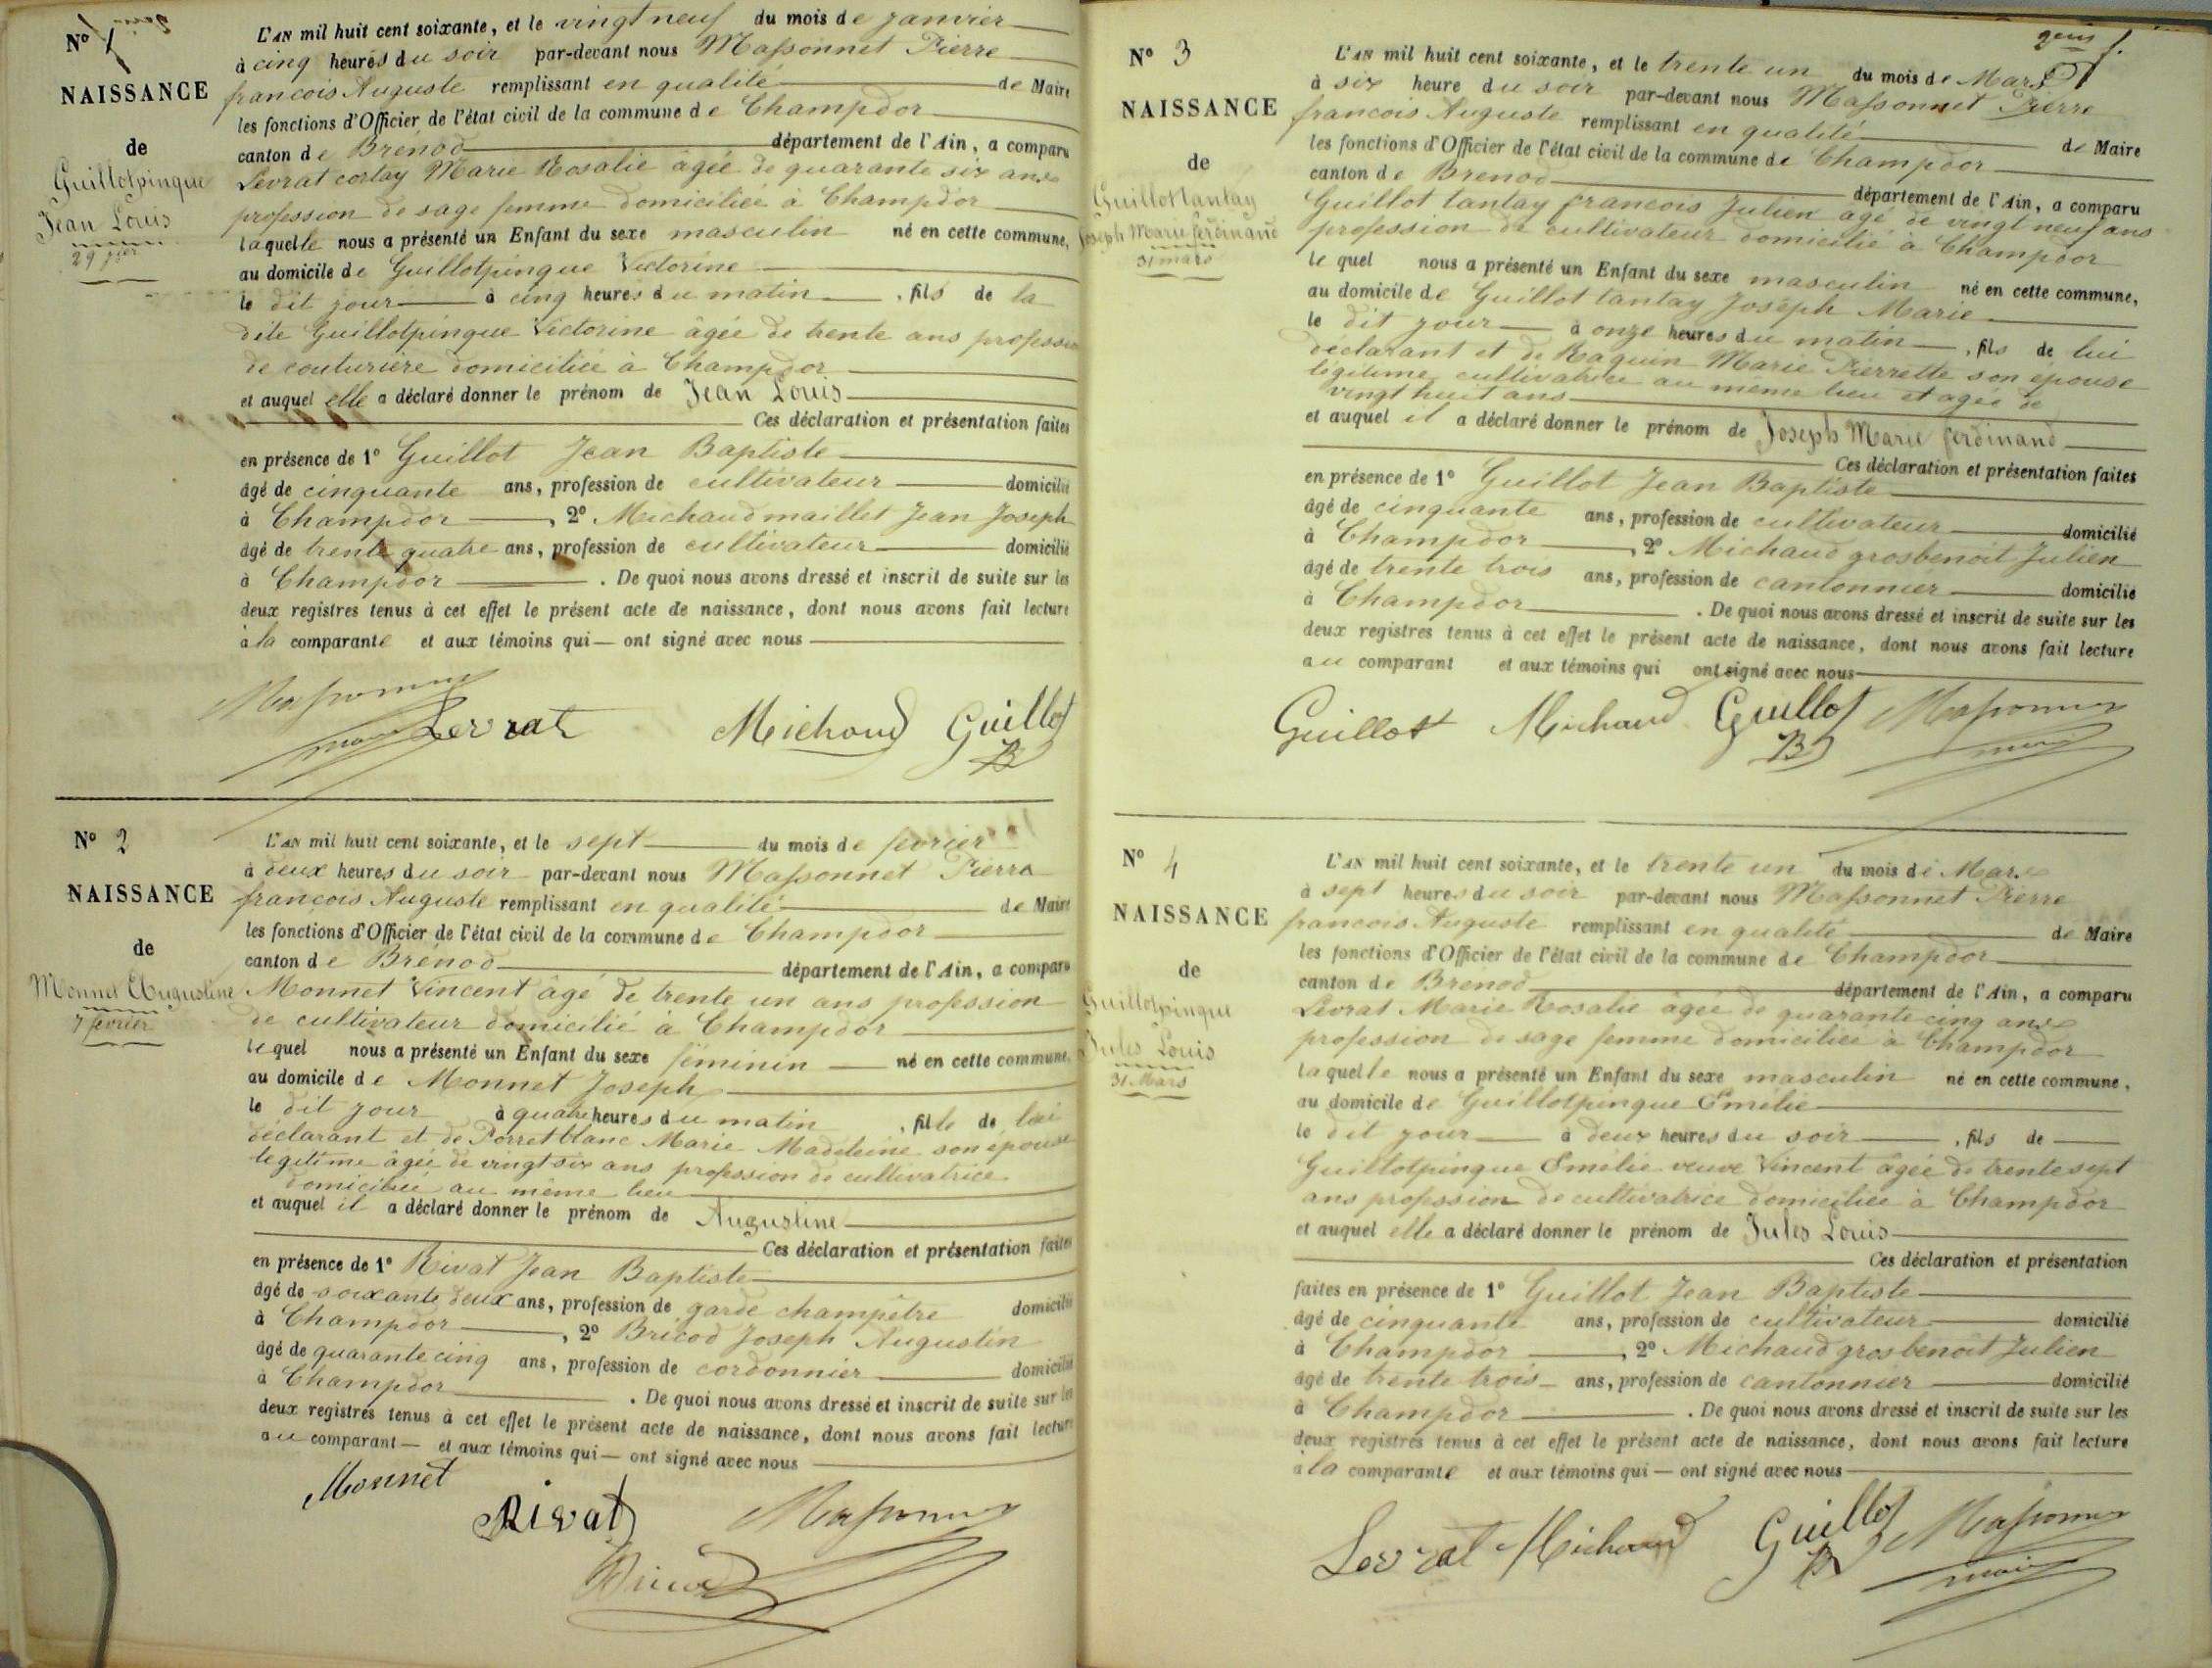 Nº 1
NAISSANCE
de
Guillotpinque
Jean Louis
29 jer
L'AN mil huit cent soixante, et le vingt neuf du mois de janvier
à cinq heures du soir par-devant nous Massonnet Pierre
francois Auguste remplissant en qualité de Maire
les fonctions d'Officier de l'état civil de la commune de Champdor
canton de Brénod département de l'Ain, a comparu
Levrat corlay Marie Rosalie âgée de quarante six ans
profession de sage femme domiciliée à Champdor
laquelle nous a présenté un Enfant du sexe masculin né en cette commune,
au domicile de Guillotpinque Victorine
le dit jour à cinq heures du matin, fils de la
dite Guillotpinque Victorine âgée de trente ans profession
de couturière domiciliée à Champdor
et auquel elle a déclaré donner le prénom de Jean Louis
Ces déclaration et présentation faites
en présence de 1º Guillot Jean Baptiste
âgé de cinquante ans, profession de cultivateur domicilié
à Champdor, 2º Michaud maillet Jean Joseph
âgé de trente quatre ans, profession de cultivateur domicilié
à Champdor. De quoi nous avons dressé et inscrit de suite sur les
deux registres tenus à cet effet le présent acte de naissance, dont nous avons fait lecture
à la comparante et aux témoins qui — ont signé avec nous
Massonnet
maire Levrat Michaud Guillot
B
Nº 2
NAISSANCE
de
Monnet Augustine
7 fevrier
L'AN mil huit cent soixante, et le sept du mois de fevrier
à deux heures du soir par-devant nous Massonnet Pierre
francois Auguste remplissant en qualité de Maire
les fonctions d'Officier de l'état civil de la commune de Champdor
canton de Brénod département de l'Ain, a comparu
Monnet Vincent âgé de trente un ans profession
de cultivateur domicilié à Champdor
lequel nous a présenté un Enfant du sexe féminin né en cette commune,
au domicile de Monnet Joseph
le dit jour à quatre heures du matin, fille de lui
déclarant et de Porretblanc Marie Madeleine son épouse
légitime âgée de vingt six ans profession de cultivatrice
domiciliée au même lieu
et auquel il a déclaré donner le prénom de Augustine
Ces déclaration et présentation faites
en présence de 1º Rivat Jean Baptiste
âgé de soixante deux ans, profession de garde champêtre domicilié
à Champdor, 2º Bricod Joseph Augustin
âgé de quarante cinq ans, profession de cordonnier domicilié
à Champdor. De quoi nous avons dressé et inscrit de suite sur les
deux registres tenus à cet effet le présent acte de naissance, dont nous avons fait lecture
au comparant — et aux témoins qui — ont signé avec nous
Monnet
Rivat Massonnet
Bricod
Nº 3
NAISSANCE
de
Guillottantay
Joseph Marie ferdinand
31 mars
L'AN mil huit cent soixante, et le trente un du mois de Mars
à six heure du soir par-devant nous Massonnet Pierre
francois Auguste remplissant en qualité de Maire
les fonctions d'Officier de l'état civil de la commune de Champdor
canton de Brenod département de l'Ain, a comparu
Guillot tantay francois Julien âgé de vingt neuf ans
profession de cultivateur domicilié à Champdor
lequel nous a présenté un Enfant du sexe masculin né en cette commune,
au domicile de Guillot tantay Joseph Marie
le dit jour à onze heures du matin, fils de lui
déclarant et de Raquin Marie Pierrette son épouse
légitime cultivatrice au même lieu et agée de
vingt huit ans
et auquel il a déclaré donner le prénom de Joseph Marie ferdinand
Ces déclaration et présentation faites
en présence de 1º Guillot Jean Baptiste
âgé de cinquante ans, profession de cultivateur domicilié
à Champdor, 2º Michaud grosbenoit Julien
âgé de trente trois ans, profession de cantonnier domicilié
à Champdor. De quoi nous avons dressé et inscrit de suite sur les
deux registres tenus à cet effet le présent acte de naissance, dont nous avons fait lecture
au comparant et aux témoins qui ont signé avec nous
Guillot Michaud Guillot Massonnet
B maire
Nº 4
NAISSANCE
de
Guillotpinque
Jules Louis
31 Mars
L'AN mil huit cent soixante, et le trente un du mois de Mars
à sept heures du soir par-devant nous Massonnet Pierre
francois Auguste remplissant en qualité de Maire
les fonctions d'Officier de l'état civil de la commune de Champdor
canton de Brenod département de l'Ain, a comparu
Levrat Marie Rosalie âgée de quarante cinq ans
profession de sage femme domiciliée à Champdor
laquelle nous a présenté un Enfant du sexe masculin né en cette commune,
au domicile de Guillotpinque Emélie
le dit jour à deux heures du soir, fils de
Guillotpinque Emélie veuve Vincent âgée de trente sept
ans profession de cultivatrice domiciliée à Champdor
et auquel elle a déclaré donner le prénom de Jules Louis
Ces déclaration et présentation
faites en présence de 1º Guillot Jean Baptiste
âgé de cinquante ans, profession de cultivateur domicilié
à Champdor, 2º Michaud grosbenoit Julien
âgé de trente trois ans, profession de cantonnier domicilié
à Champdor. De quoi nous avons dressé et inscrit de suite sur les
deux registres tenus à cet effet le présent acte de naissance, dont nous avons fait lecture
à la comparante et aux témoins qui — ont signé avec nous
Levrat Michaud Guillot Massonnet
B maire